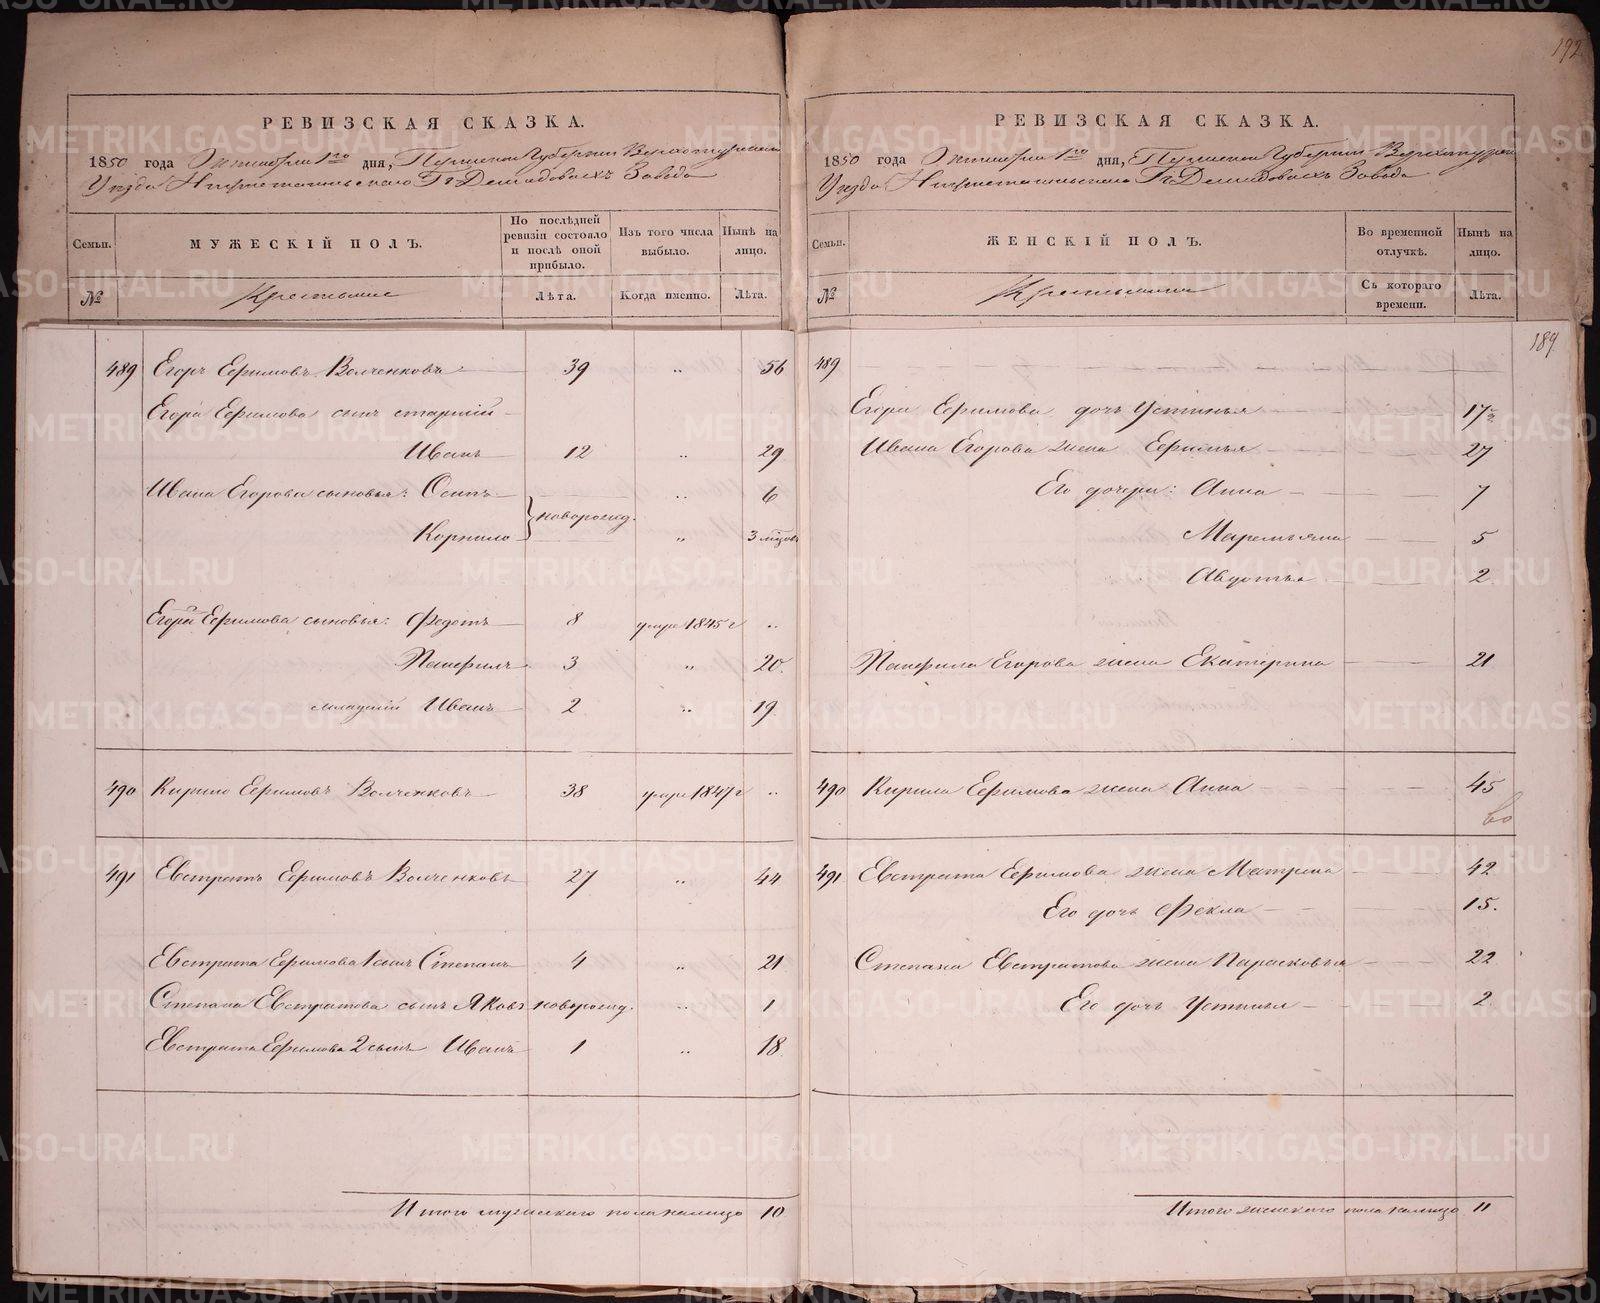 192
РЕВИЗСКАЯ СКАЗКА.
1850 года Октября 1го дня, Пермской Губернии Верхотурскаго
Уезда Нижнетагильскаго Гг Демидовыхъ Завода
Семьи.
МУЖЕСКІЙ ПОЛЪ.
По послѣдней ревизіи состояло и послѣ оной прибыло.
Изъ того числа выбыло.
Нынѣ на лицо.
№
Крестьяне
Лѣта.
Когда именно.
Лѣта.
489 Егоръ Ефимовъ Волченковъ 39 „ 56
Егора Ефимова сынъ старшій
Иванъ 12 „ 29
Ивана Егорова сыновья: Осипъ „ 6
новорожд.
Корнило „ 3 мѣсяц
Егора Ефимова сыновья: Федотъ 8 умре 1845 г „
Панфилъ 3 „ 20.
младшій Иванъ 2 „ 19
490 Кирило Ефимовъ Волченковъ 38 умре 1847 г „
491 Евстратъ Ефимовъ Волченковъ 27 „ 44
Евстрата Ефимова 1 сынъ Степанъ 4 „ 21
Степана Евстратова сынъ Яковъ новорожд. „ 1
Евстрата Ефимова 2 сынъ Иванъ 1 „ 18.
Итого мужескаго пола налицо 10
РЕВИЗСКАЯ СКАЗКА.
1850 года Октября 1го дня, Пермской Губернии Верхотурскаго
Уезда Нижнетагильскаго Гг Демидовыхъ Завода
Семьи.
ЖЕНСКІЙ ПОЛЪ.
Во временной отлучкѣ.
Нынѣ на лицо.
№
Крестьянки
Съ котораго времени.
Лѣта.
189
489
Егора Ефимова дочь Устинья 17
Ивана Егорова жена Ефимья 27
Его дочери: Анна 7
Маремьяна 5
Авдотья 2
Панфила Егорова жена Екатерина 21
490 Кирила Ефимова жена Анна 45
491 Евстрата Ефимова жена Матрена 42
Его дочь Фекла 15.
Степана Евстратова жена Парасковья 22
Его дочь Устинья 2
Итого женскаго пола налицо 11
METRIKI.GASO-URAL.RU